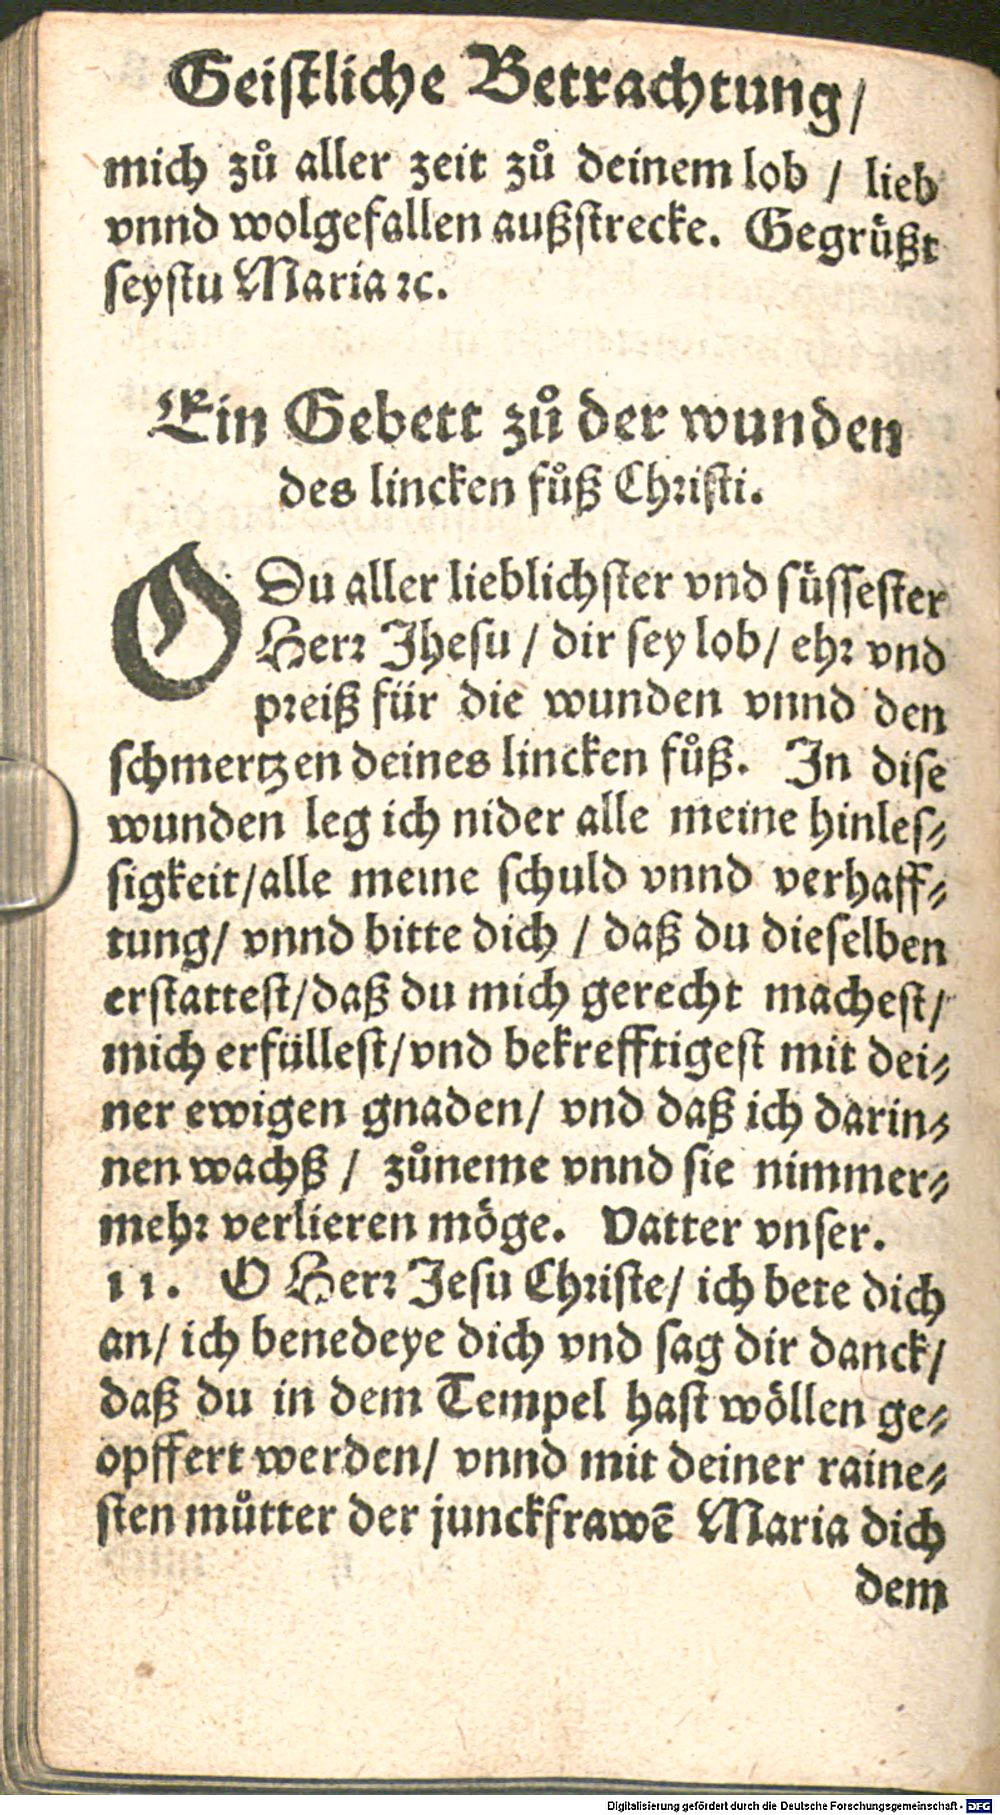 Geistliche Betrachtung/
mich zů aller zeit zů deinem lob / lieb
vnnd wolgefallen außstrecke. Gegrüßt
seystu Maria ꝛc.
Ein Gebett zů der wunden
des lincken fůß Christi.
O Du aller lieblichster vnd süssester
Herr Jhesu / dir sey lob/ ehr vnd
preiß für die wunden vnnd den
schmertzen deines lincken fůß. In dise
wunden leg ich nider alle meine hinles⸗
sigkeit/alle meine schuld vnnd verhaff⸗
tung/ vnnd bitte dich / daß du dieselben
erstattest/daß du mich gerecht machest/
mich erfüllest/vnd bekrefftigest mit dei⸗
ner ewigen gnaden/ vnd daß ich darin⸗
nen wachß / zůneme vnnd sie nimmer⸗
mehr verlieren möge. Vatter vnser.
11. O Herr Jesu Christe/ ich bete dich
an/ ich benedeye dich vnd sag dir danck/
daß du in dem Tempel hast wöllen ge⸗
opffert werden/ vnnd mit deiner raine⸗
sten můtter der junckfrawē Maria dich
dem
Digitalisierung gefördert durch die Deutsche Forschungsgemeinschaft - DFG